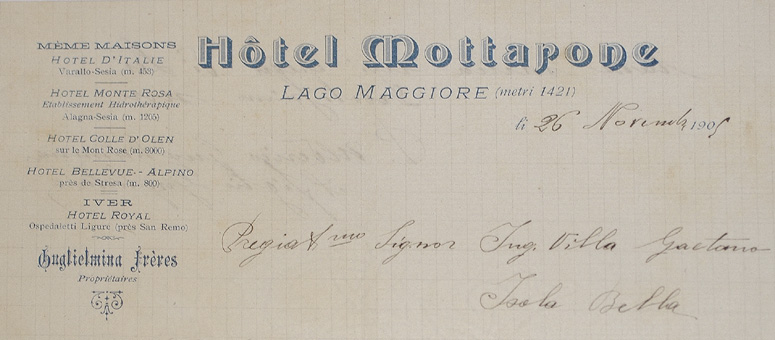 MÊME MAISONS
HOTEL D'ITALIE
Varallo-Sesia (m. 453)
HOTEL MONTE ROSA
Etablissement Hidrothérapique
Alagna-Sesia (m. 1205)
HOTEL COLLE D'OLEN
sur le Mont Rose (m. 3000)
HOTEL BELLEVUE - ALPINO
près de Stresa (m. 800)
IVER
HOTEL ROYAL
Ospedaletti Ligure (près San Remo)
Guglielmina Frères
Propriétaires
Hôtel Mottarone
LAGO MAGGIORE (metri 1421)
li 26 Novemb 1905
Pregiatmo Signor Ing. Villa Gaetano
Isola Bella